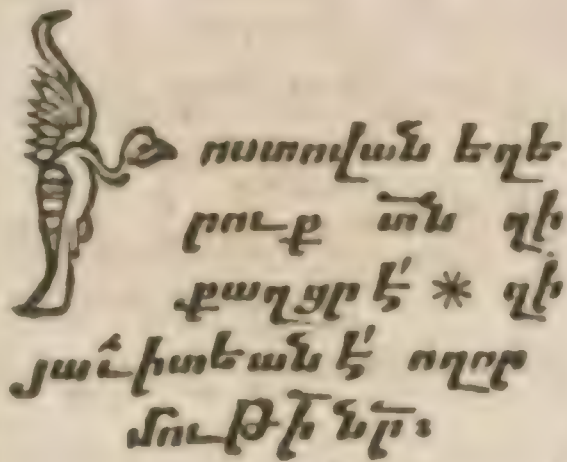 Խոստովան եղե
րուք տ՟ն զի
քաղցր է՛ * զի
յաւիտեան է՛ ողոր
մութի՟ նր՟։